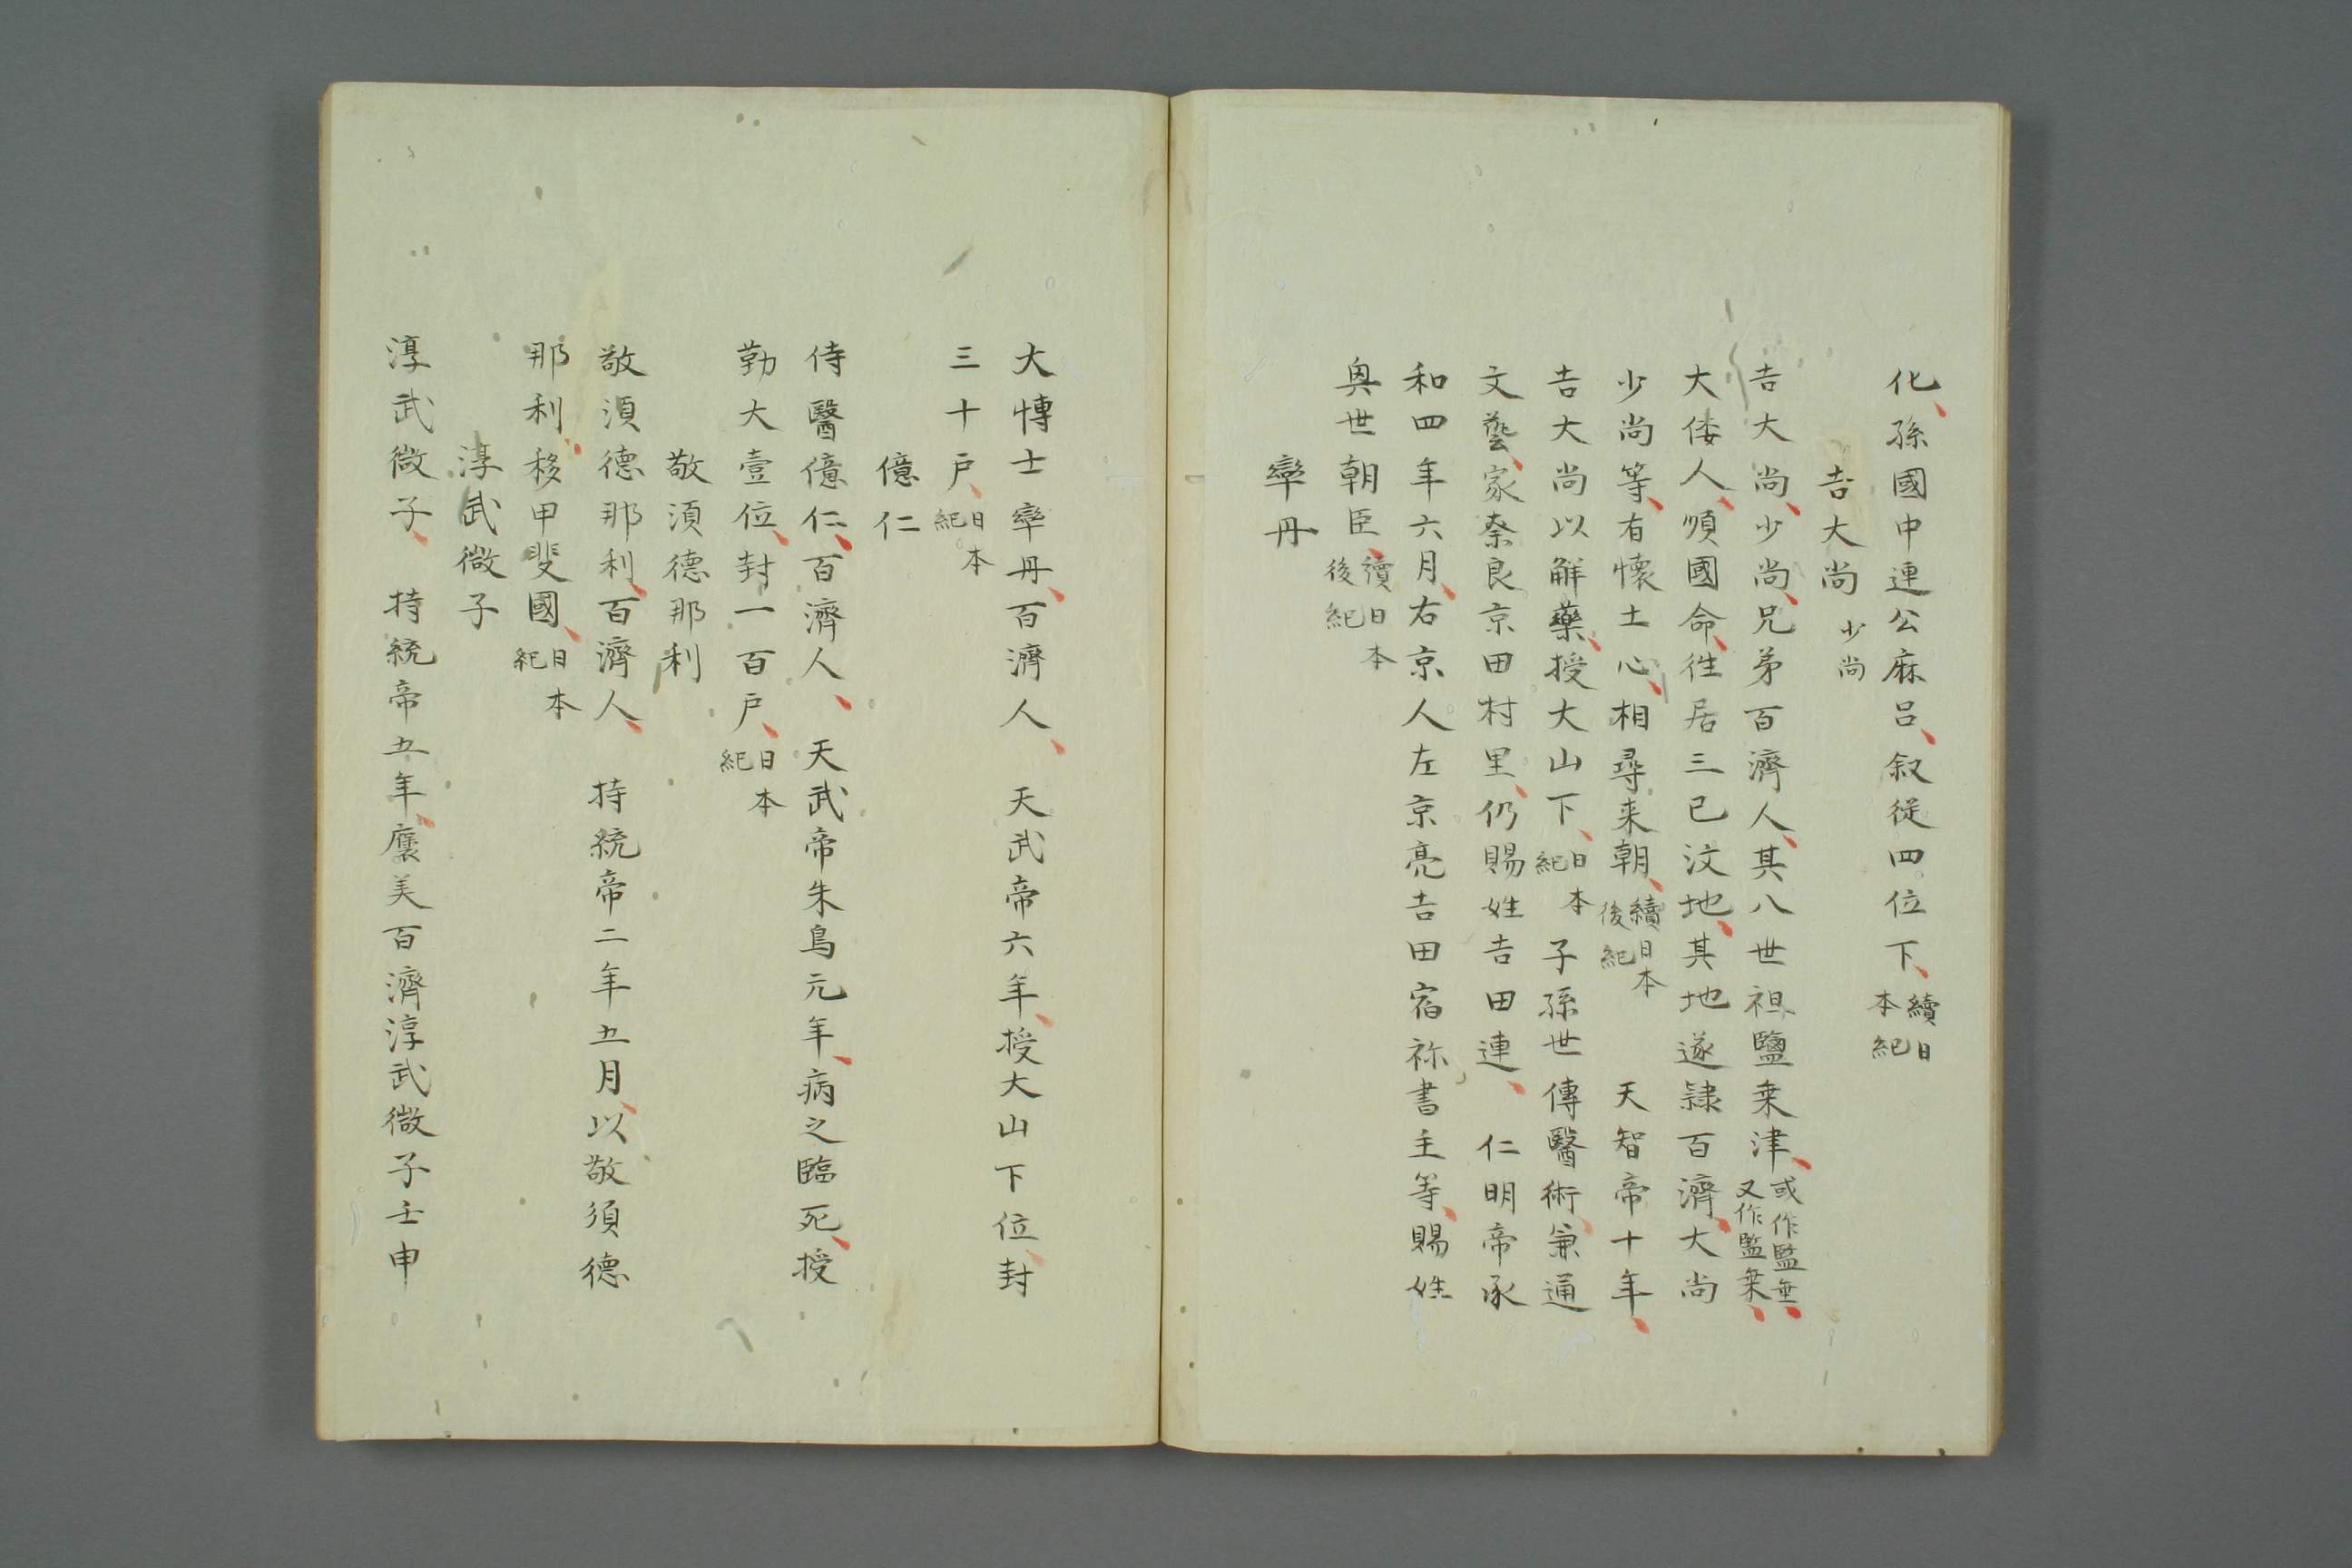 化、孫國中連公麻呂、叙從四位下、續日本紀
吉大尚 少尚
吉大尚、少尚、兄弟百濟人、其八世祖鹽乗津、或作監垂、又作監乗、
大倭人、順國命、徃居三已汶地、其地遂隷百濟、大尚
少尚等、有懐土心、相尋来朝、續日本後紀 天智帝十年、
吉大尚以解藥、授大山下、日本紀 子孫世傳醫術、兼通
文藝、家奈良京田村里、仍賜姓吉田連、 仁明帝承
和四年六月、右京人左京亮吉田宿祢書主等、賜姓
興世朝臣、續日本後紀
率丹
大博士率丹、百濟人、 天武帝六年、授大山下位、封
三十戸、日本紀
億仁
侍醫億仁、百濟人、 天武帝朱鳥元年、病之臨死、授
勤大壹位、封一百戸、日本紀
敬須德那利
敬須德那利、百濟人、 持統帝二年五月、以敬須德
那利、移甲斐國、日本紀
淳武微子
淳武微子、 持統帝五年、褒美百濟淳武微子壬申